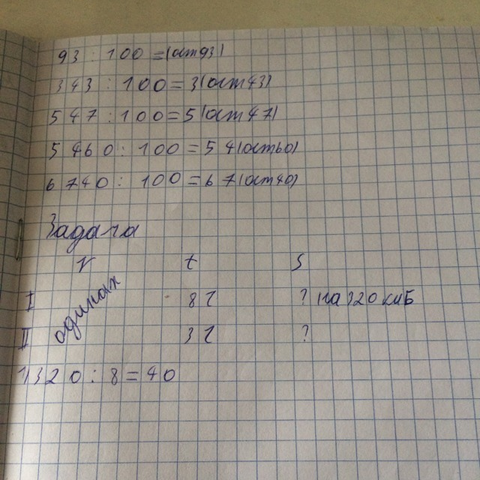 93 : 100 = (ост 93)
343 : 100 = 3 (ост 43)
547 : 100 = 5 (ост 47)
5 460 : 100 = 54 (ост 60)
6 740 : 100 = 67 (ост 40)
Задача
V t S
I одинак 8 г ? на 320 км Б
II 3 г ?
1) 320 : 8 = 40